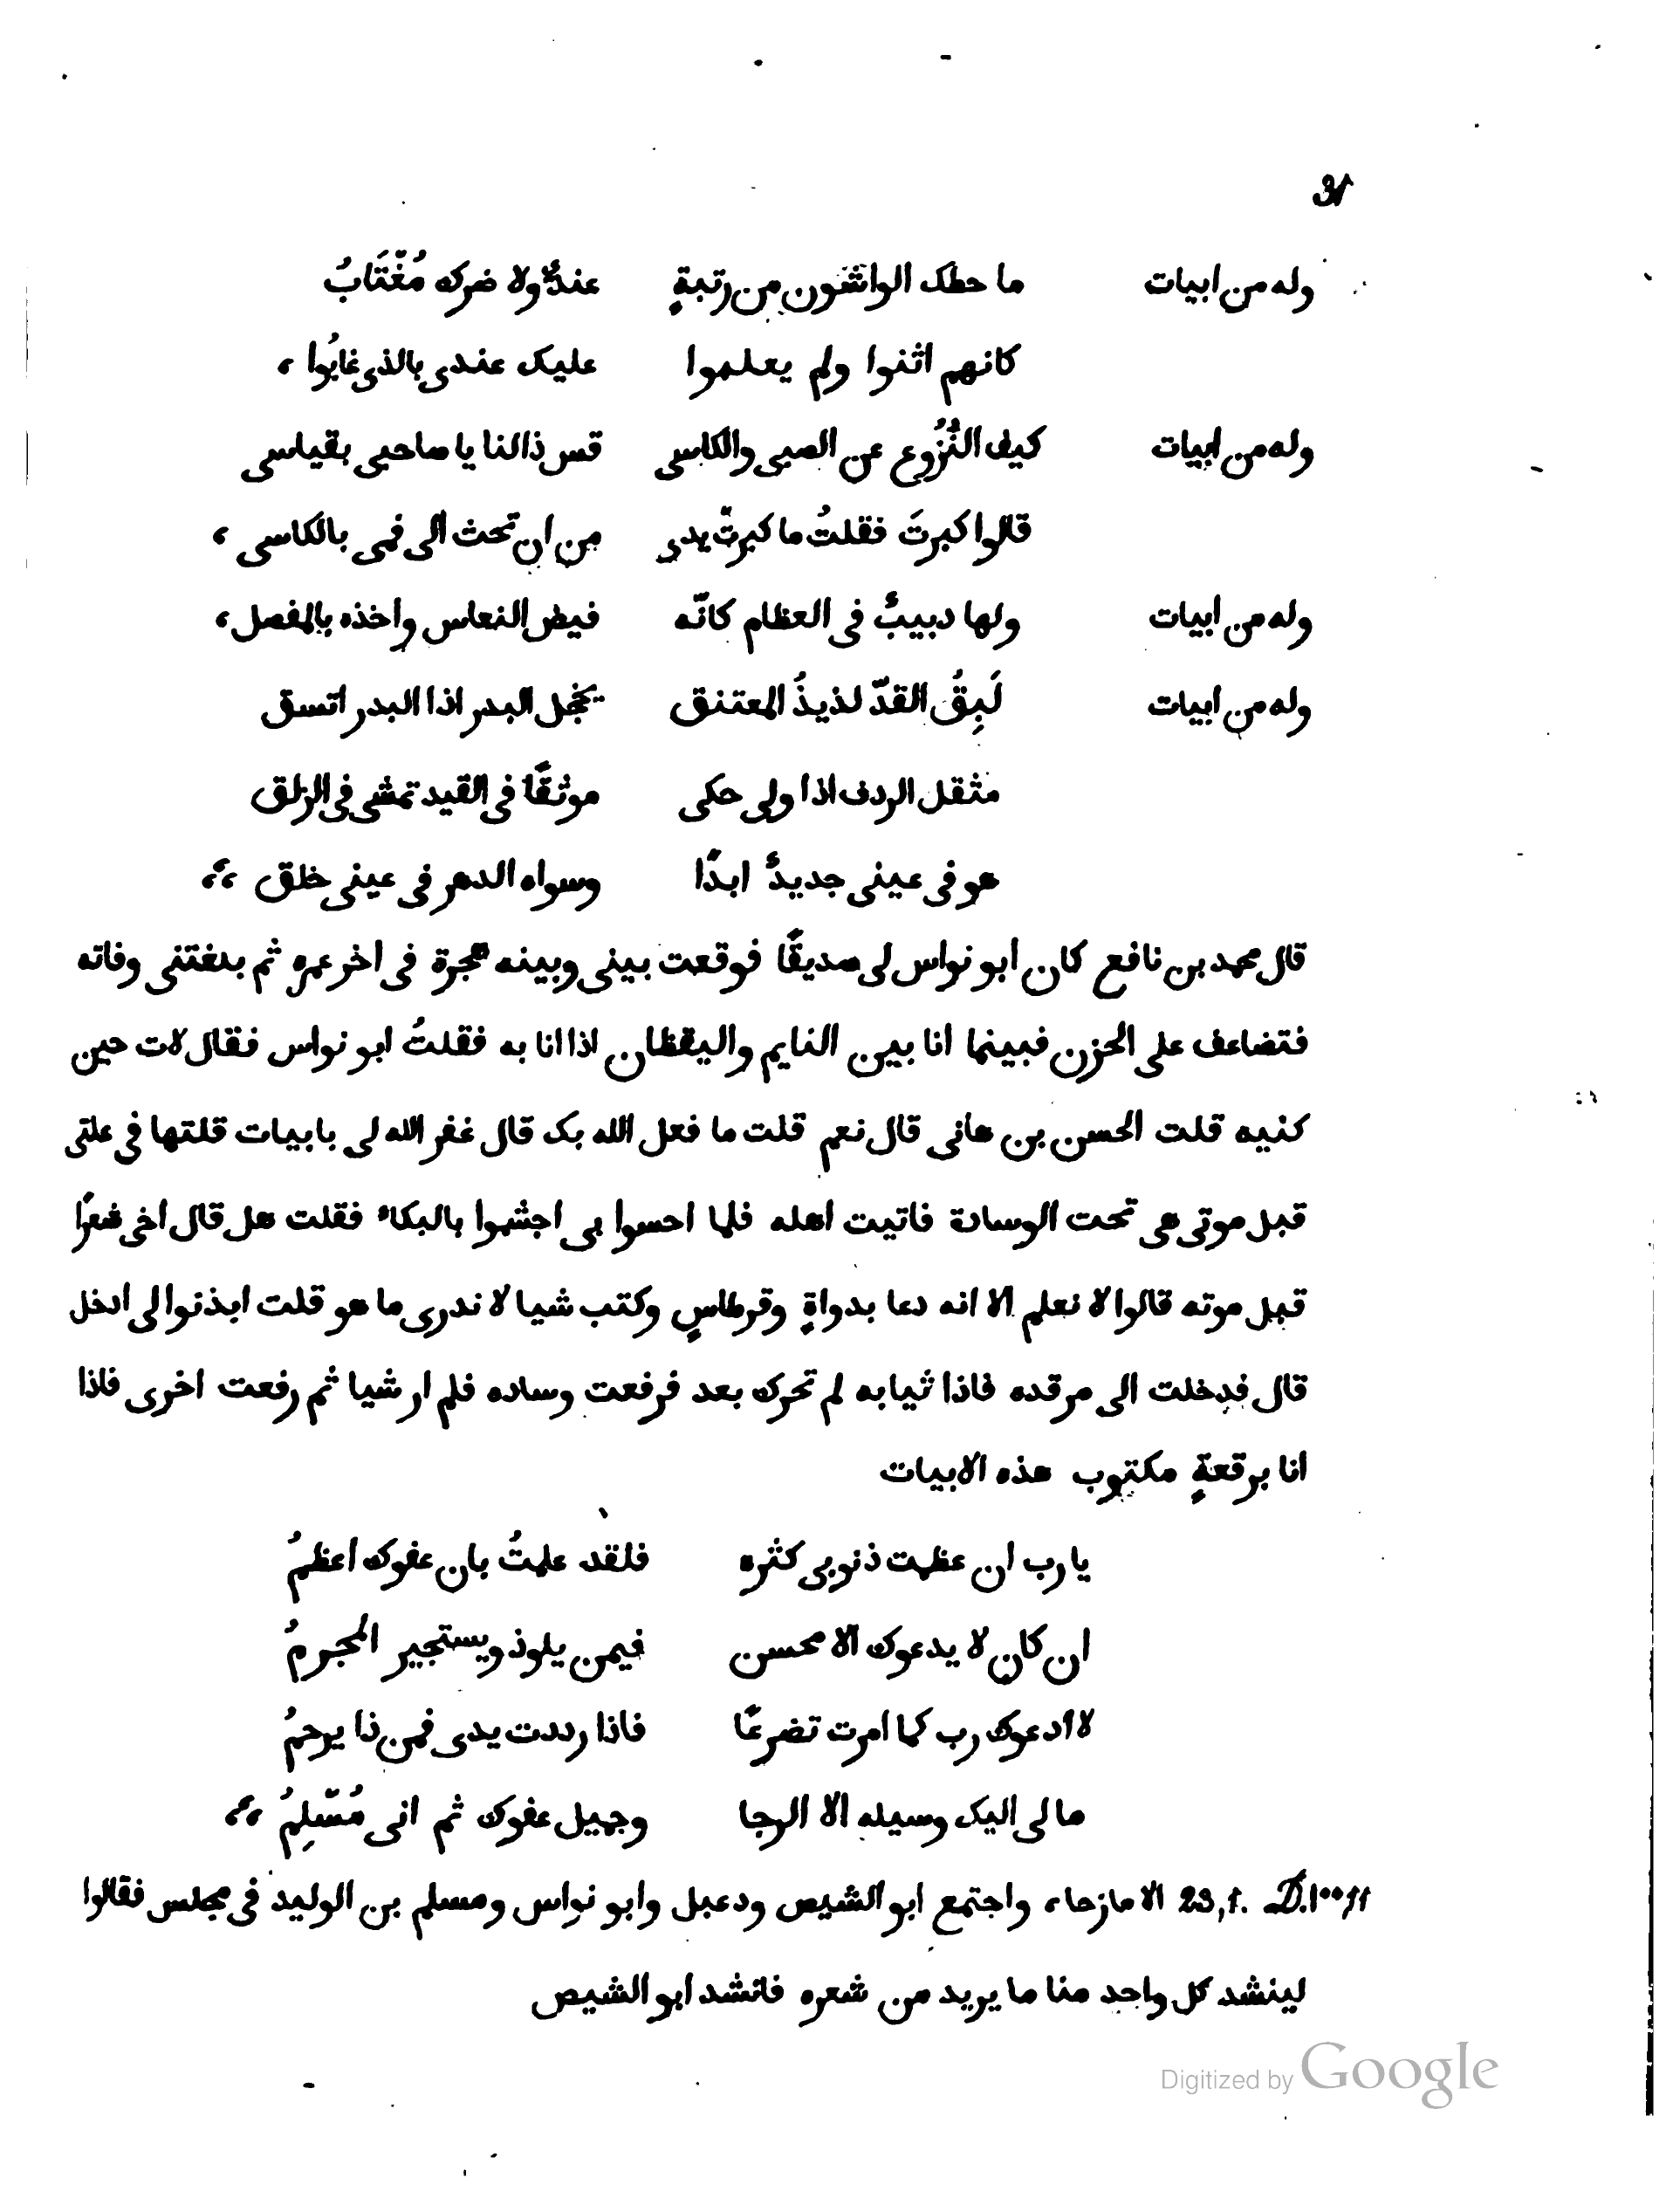 31
وله من ابيات ما حطك الواشون من رتبةٍ عندىٌ ولا ضرك مُغْتَابُ
كانهم اثنوا ولم يعلموا عليك عندى بالذى غابُوا ،
وله من ابيات كيف النُزُوع عن الصبى والكاسى قس ذا لنا يا صاحبى بقياسى
قالوا كبرتَ فقلتُ ما كبرتْ يدى من ان تحث الى فمى بالكاسى ،
وله من ابيات ولها دبيبٌ فى العظام كانّه فيض النعاس واخذه بالمفصل ،
وله من ابيات لَبِقُ القدّ لذيذُ المعتنق يخجل البدر اذا البدر اتسق
مثقل الردف اذا ولى حكى موثقًا فى القيد تمشى فى الزلق
هو فى عينى جديدٌ ابدًا وسواه الدهر فى عينى خلق ،،
قال محمد بن نافع كان ابو نواس لى صديقًا فوقعت بينى وبينه هجرة فى اخر عمره ثم بلغتنى وفاته
فتضاعف على الحزن فبينما انا بين النايم واليقظان اذا انا به فقلتُ ابو نواس فقال لات حين
كنيه قلت الحسن بن هانى قال نعم قلت ما فعل الله بك قال غفر الله لى بابيات قلتها فى علتى
قبل موتى هى تحت الوسادة فاتيت اهله فلما احسوا بى اجشموا بالبكاء فقلت هل قال اخى شعرًا
قبل موته قالوا لا نعلم الا انه دعا بدواةٍ وقرطاسٍ وكتب شيا لا ندرى ما هو قلت ايذنوا لى ادخل
قال فدخلت الى مرقده فاذا ثيابه لم تحرك بعد فرفعت وساده فلم ار شيا ثم رفعت اخرى فاذا
انا برقعةٍ مكتوب هذه الابيات
يا رب ان عظمت ذنوبى كثره فلقد علمتُ بان عفوك اعظمُ
ان كان لا يدعوك الا محسن فيمن يلوذ ويستجير المجرمُ
لا ادعوك رب كما امرت تضرعًا فاذا رددت يدى فمن ذا يرحمُ
ما لى اليك وسيله الا الرجا وجميل عفوك ثم انى مُسْلِمُ ،،
23,1. الا مازحا ، واجتمع ابو الشيص ودعبل وابو نواس ومسلم بن الوليد فى مجلس فقالوا
لينشد كل واحد منا ما يريد من شعره فانشد ابو الشيص
Digitized by Google